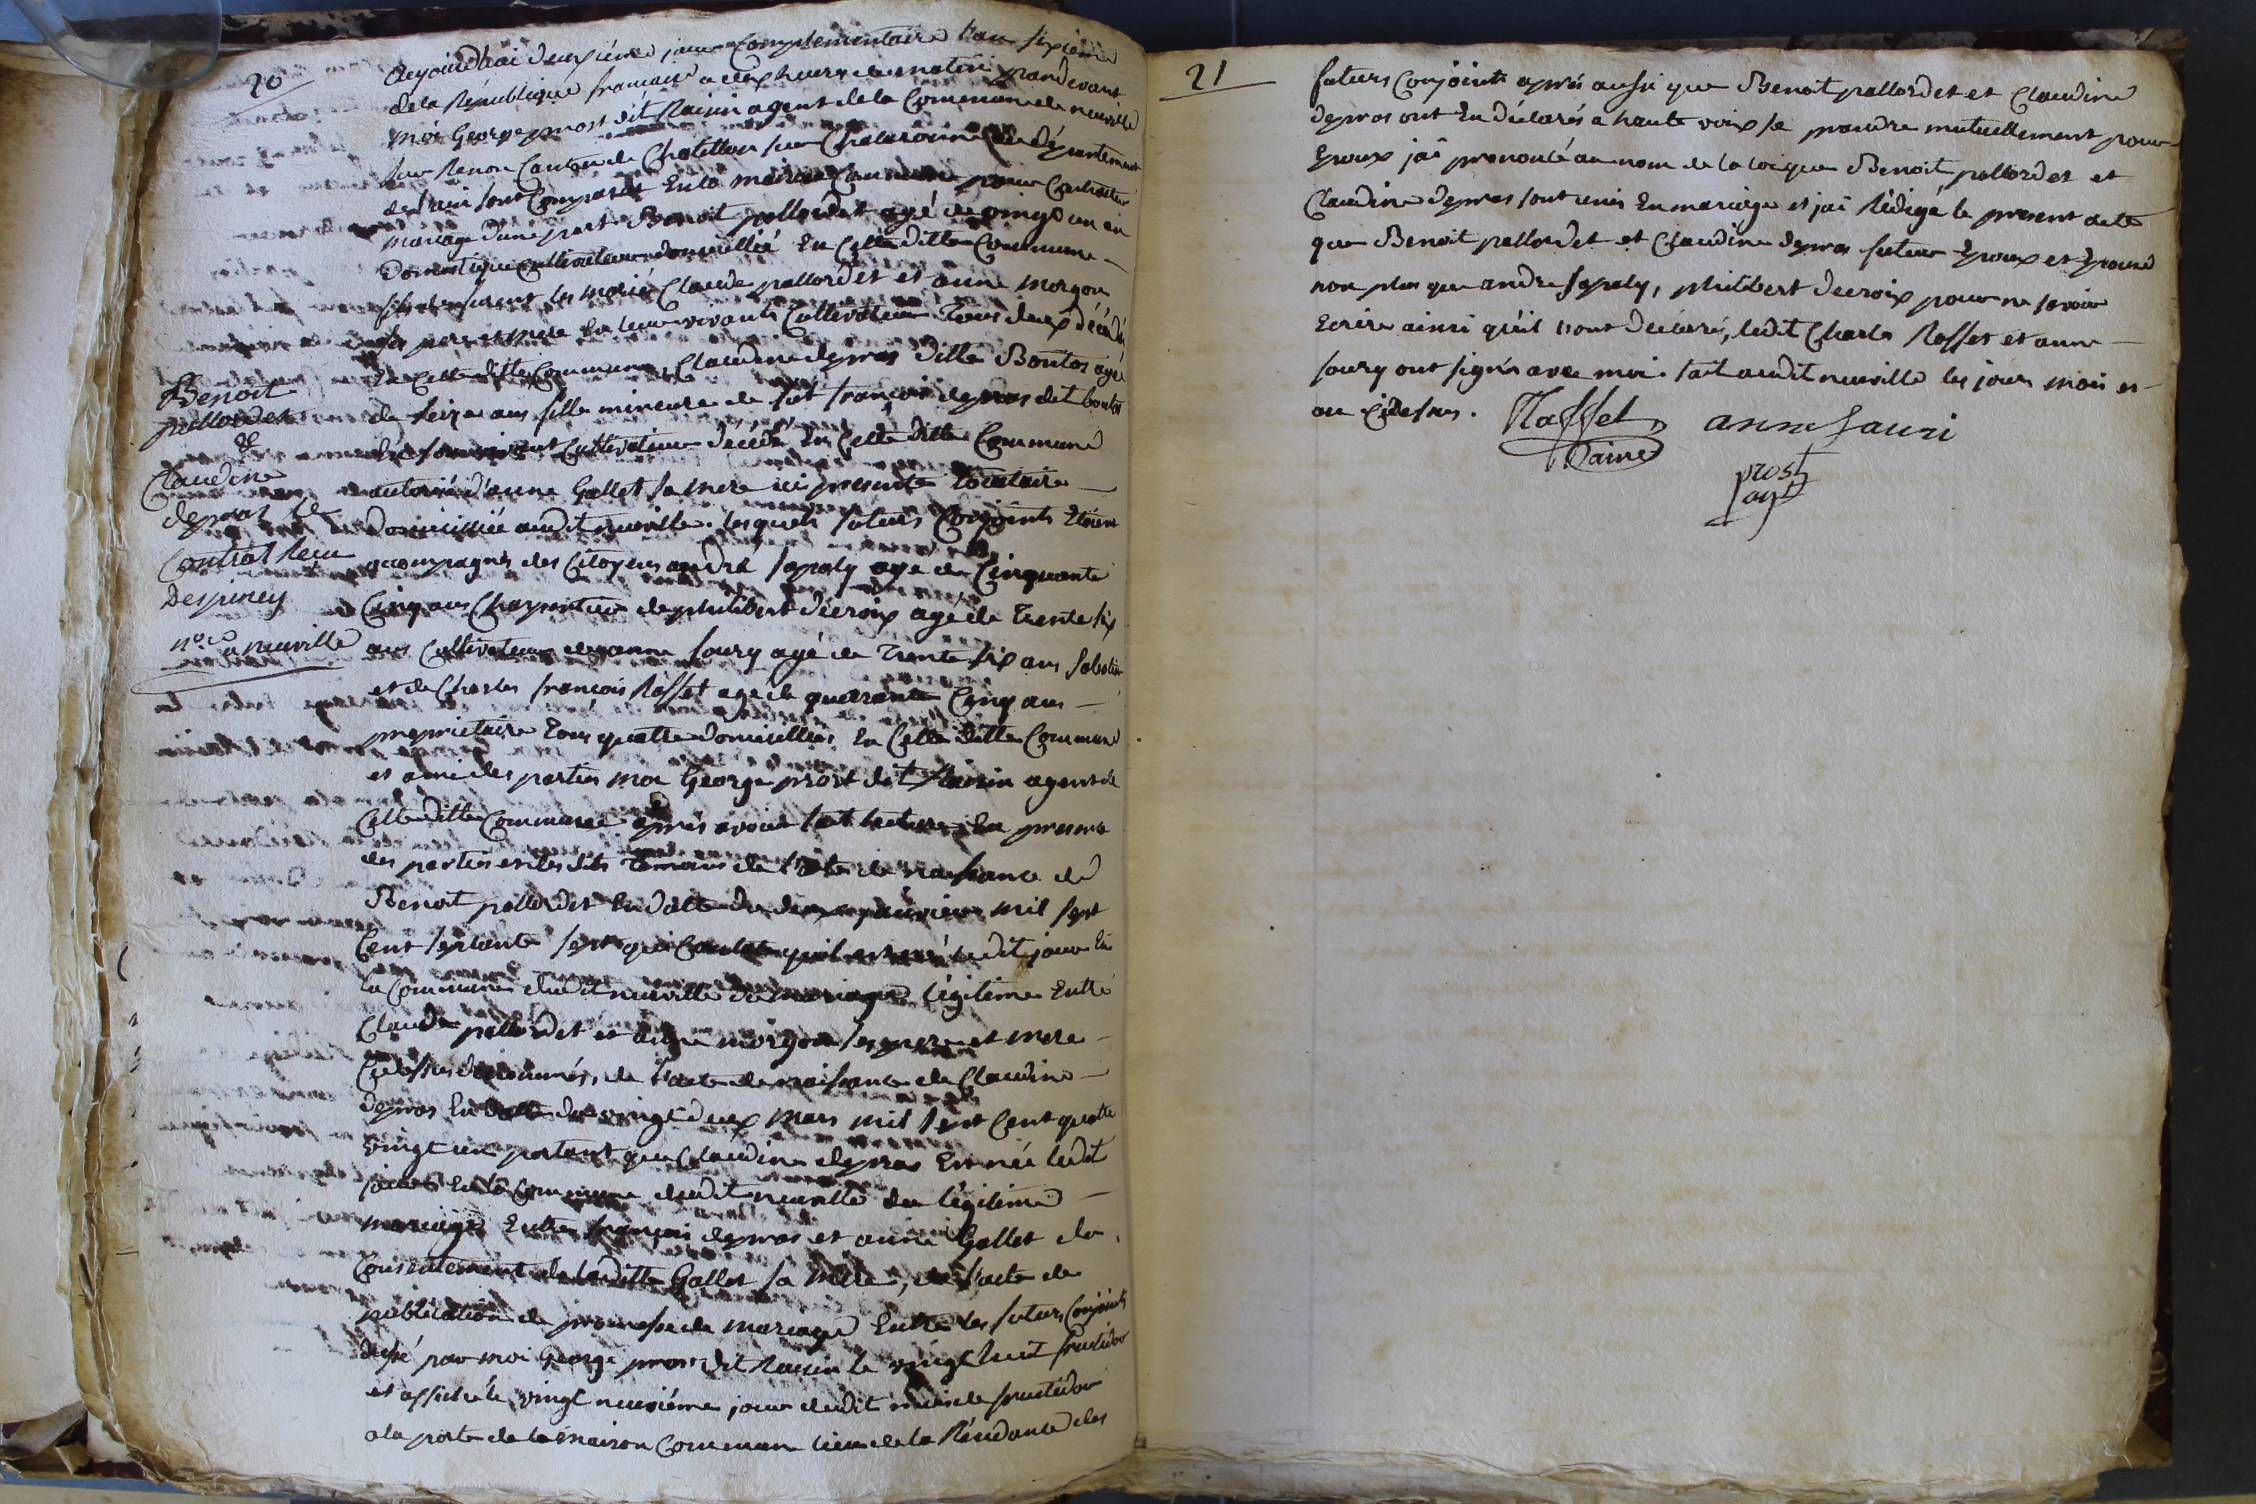 20
aujourdhui deuxiéme jour Complementaire l'an sixiéme
de la République francaise a dix heures du matin pardevant
moi George prost dit Rasin agent de la Commune de neuville
sur Renon Canton de Chatillon sur Chalaronne Département
de l'ain sont Comparus En la maison Commune pour Contracter
mariage d'une part Benoit pallordet agé de vingt un an
Domestique Cultivateur domicillié En Cette ditte Commune
fils de furent les mariés Claude pallordet et anne morgon
ses pere et mere En leur vivants Cultivateur Tous deux décédés
En Cette ditte Commune, Claudine depras ditte Bontos agée
de seize ans fille mineure de fut françois depras dit bontos
En son vivant Cultivateur decédé En Cette ditte Commune
autorisé d'anne Gallet sa mere ici presente locataire
Domicilliée audit neuville. lesquels futurs Conjoints Etoient
accompagnés des Citoyens andré sapaly agé de Cinquante
Cinq ans Charpentier de philibert decroix agé de Trente six
ans Cultivateur de anne soury agé de Trente six ans sabotier
et de Charles françois Raffet agé de quarante Cinq ans
propriétaire Tous quatre domicilliés En Cette ditte Commune
et ami des parties moi George prost dit Rassin agent de
Cette ditte Commune après avoir fait lecture En presence
des parties et des dits Temoins de l'acte de naissance de
Benoit pallordet En datte du deux janvier mil sept
Cent septante sept qui Constate qu'il est né ledit jour En
la Commune dudit neuville du mariage légitime Entre
Claude pallordet et anne morgon ses pere et mere
Cydessus dénommés, de l'acte de naissance de Claudine
depras En datte du vingt deux mars mil sept Cent quatre
vingt un portant que Claudine depras Est née ledit
jour En la Commune dudit neuville du légitime
mariage Entre françois depras et anne Gallet du
Consentement de laditte Gallet sa mere, de l'acte de
publication de promesse de mariage Entre les futurs Conjoints
dressé par moi George prost dit Rassin le vingt huit fructidor
et affiché le vingt neuviéme jour dudit mois de fructidor
a la porte de la maison Commune lieu de la Résidence des
Benoit
pallordet
&
Claudine
depras le
Contrat Reçu
Despiney
n.re a neuville
21
futurs Conjoints après aussi que Benoit pallordet et Claudine
depras ont Eu déclarés a haute voix se prendre mutuellement pour
Epoux jai prononcé au nom de la loi que Benoit pallordet et
Claudine depras sont unis En mariage et jai Rédigé le present acte
que Benoit pallordet et Claudine depras futur Epoux et Epouse
non plus que andre sapaly, philibert decroix pour ne savoir
Ecrire ainsi qu'il l'ont declaré, ledit Charles Raffet et anne
soury ont signés avec moi. fait audit neuville les jours mois et
an Cydessus.
Raffet anne sauri
Lainé
prost
agt